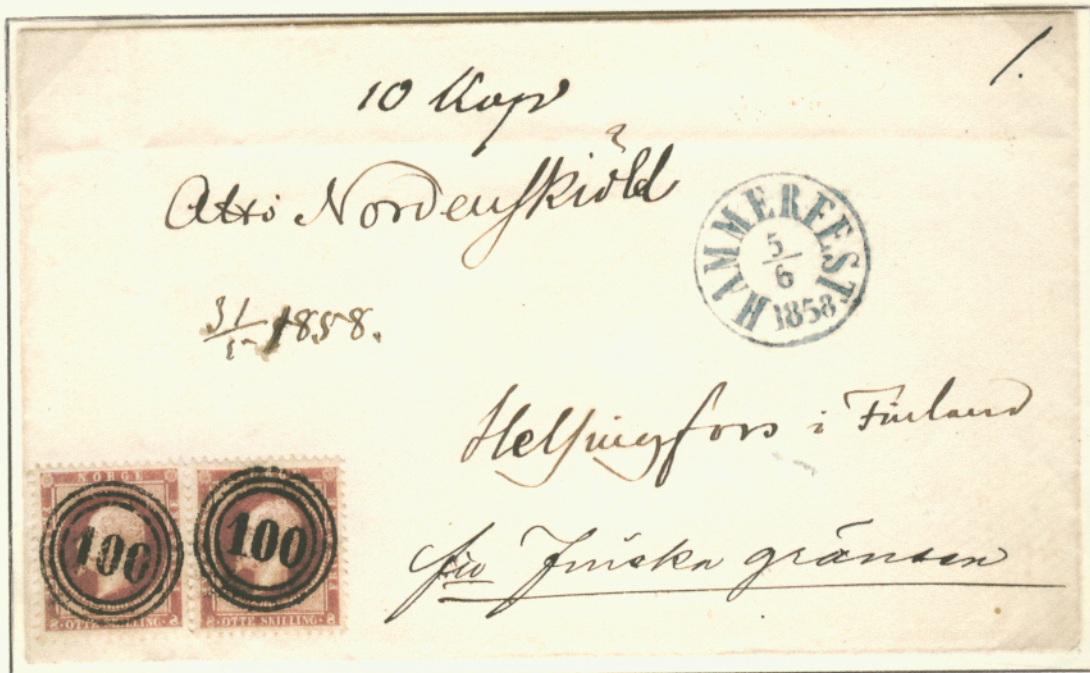 1.
10 Kop
Otto Nordenskiöld
HAMMERFEST
5/6
1858
31/5 1858.
Helsingfors i Finland
fr​io Finska gränsen
NORGE
100
100
OTTE SKILLING
OTTE SKILLING